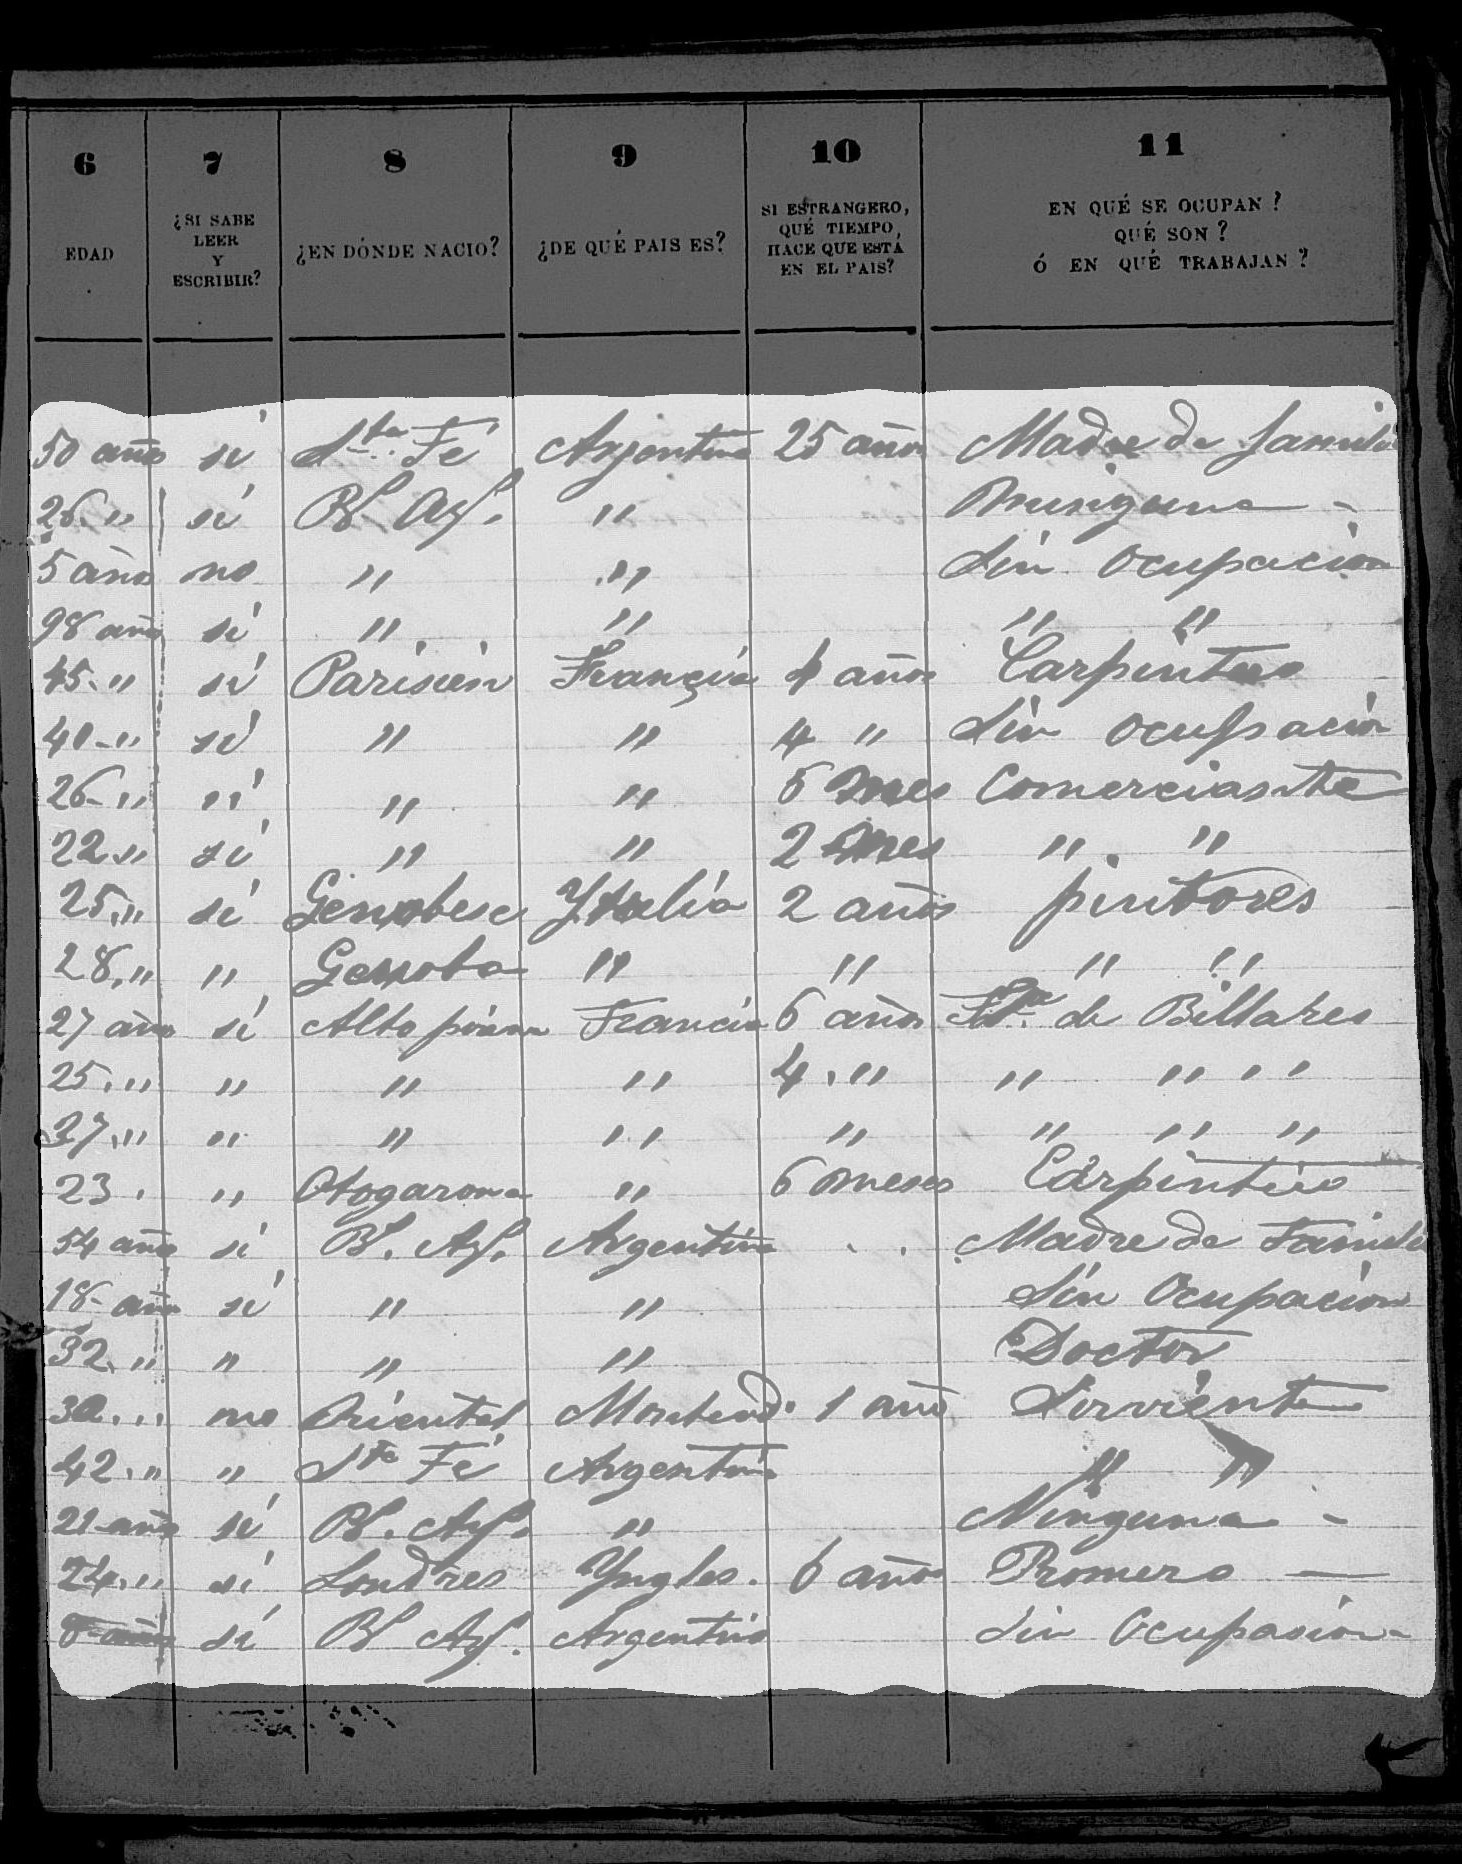 6 7 8 9 10 11
EDAD ¿SI SABE LEER Y ESCRIBIR? ¿EN DÓNDE NACIO? ¿DE QUÉ PAIS ES? SI ESTRANGERO, QUÉ TIEMPO, HACE QUE ESTÁ EN EL PAIS? EN QUÉ SE OCUPAN? QUÉ SON? Ó EN QUÉ TRABAJAN?
50 años si Sta. Fé Arjentina 25 años Madre de familia
26 " si Bs. Ays. " Ninguna -
5 años no " " Sin ocupacion
98 años si " " " "
45 " si Parisien Francia 4 años Carpintero
40 " si " " 4 " Sin ocupación
26 " " " " 5 mes Comerciante
22 " si " " 2 mes " "
25 " si Genobese Ytalia 2 años pintores
28 " " Genoba " " " "
27 años si Francia 6 años de Billares
25 " " " " 4 " " " "
37 " " " " " " " "
23 " " 6 meses Carpintero
54 años si Bs. Ays. Argentina . . Madre de Familia
18 años si " " Sin Ocupación
32 " " " " Doctor
30 " no Oriental Montevdo. 1 año Sirviente
42 " " Sta Fé Argentina " "
21 años si Bs. Ays. " Ninguna -
24 " si Londres Yngles. 6 años Romero —
8 años si Bs Ays. Argentino Sin Ocupasion -